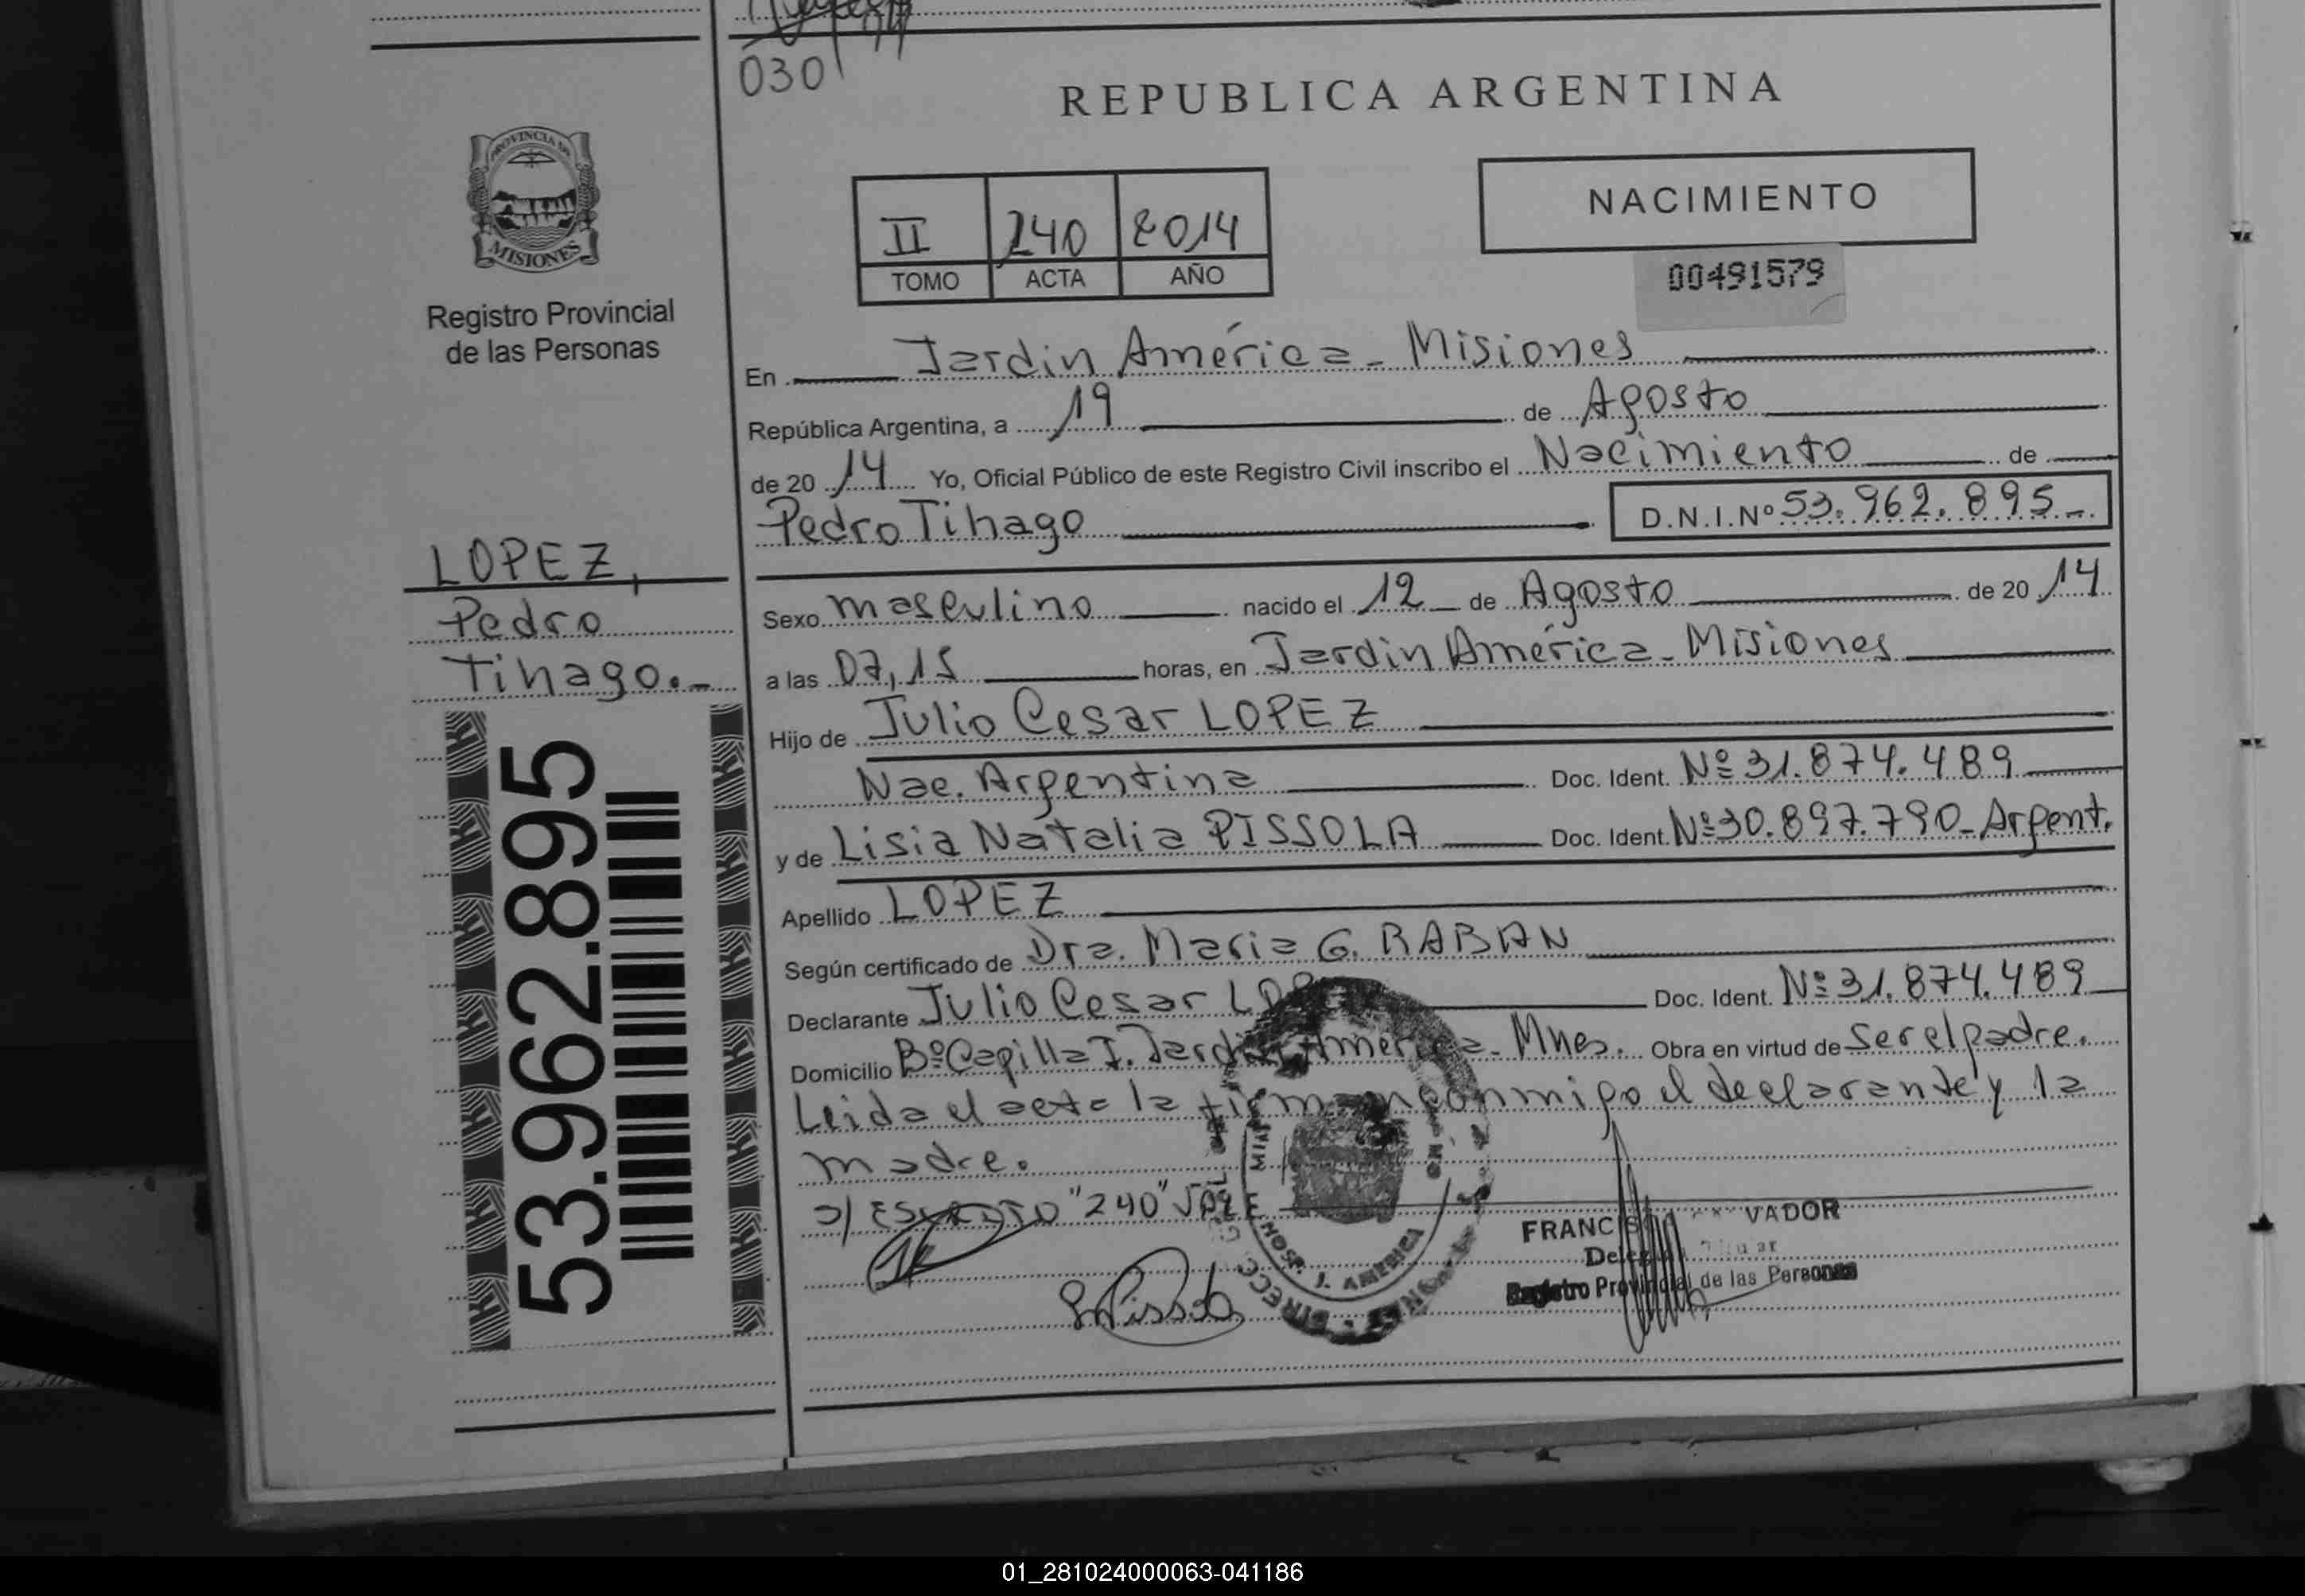 030
REPUBLICA ARGENTINA
PROVINCIA DE
MISIONES
Registro Provincial
de las Personas
II 240 2014
TOMO ACTA AÑO
NACIMIENTO
00491579
En Jardin América - Misiones
República Argentina, a 19 de Agosto
de 20 14 Yo, Oficial Público de este Registro Civil inscribo el Nacimiento de
Pedro Tihago D.N.I. Nº 53.962.895-
LOPEZ,
Pedro
Tihago.-
53.962.895
Sexo masculino nacido el 12 de Agosto de 20 14
a las 07,15 horas, en Jardin América - Misiones
Hijo de Julio Cesar LOPEZ
Nac. Argentina Doc. Ident. Nº 31.874.489
y de Lisia Natalia PISSOLA Doc. Ident. Nº 30.897.790- Argent.
Apellido LOPEZ
Según certificado de Dra. Maria G. RABAN
Declarante Julio Cesar LOPEZ Doc. Ident. Nº 31.874.489
Domicilio Bº Capilla I. Jardin América - Mnes. Obra en virtud de ser el padre.
Leida el acta la firman conmigo el declarante y la
madre.
S/ ESCRITO "240" VALE
HOSP. J. AMERICA
FRANCIS VADOR
Registro Provincial de las Personas
01_281024000063-041186